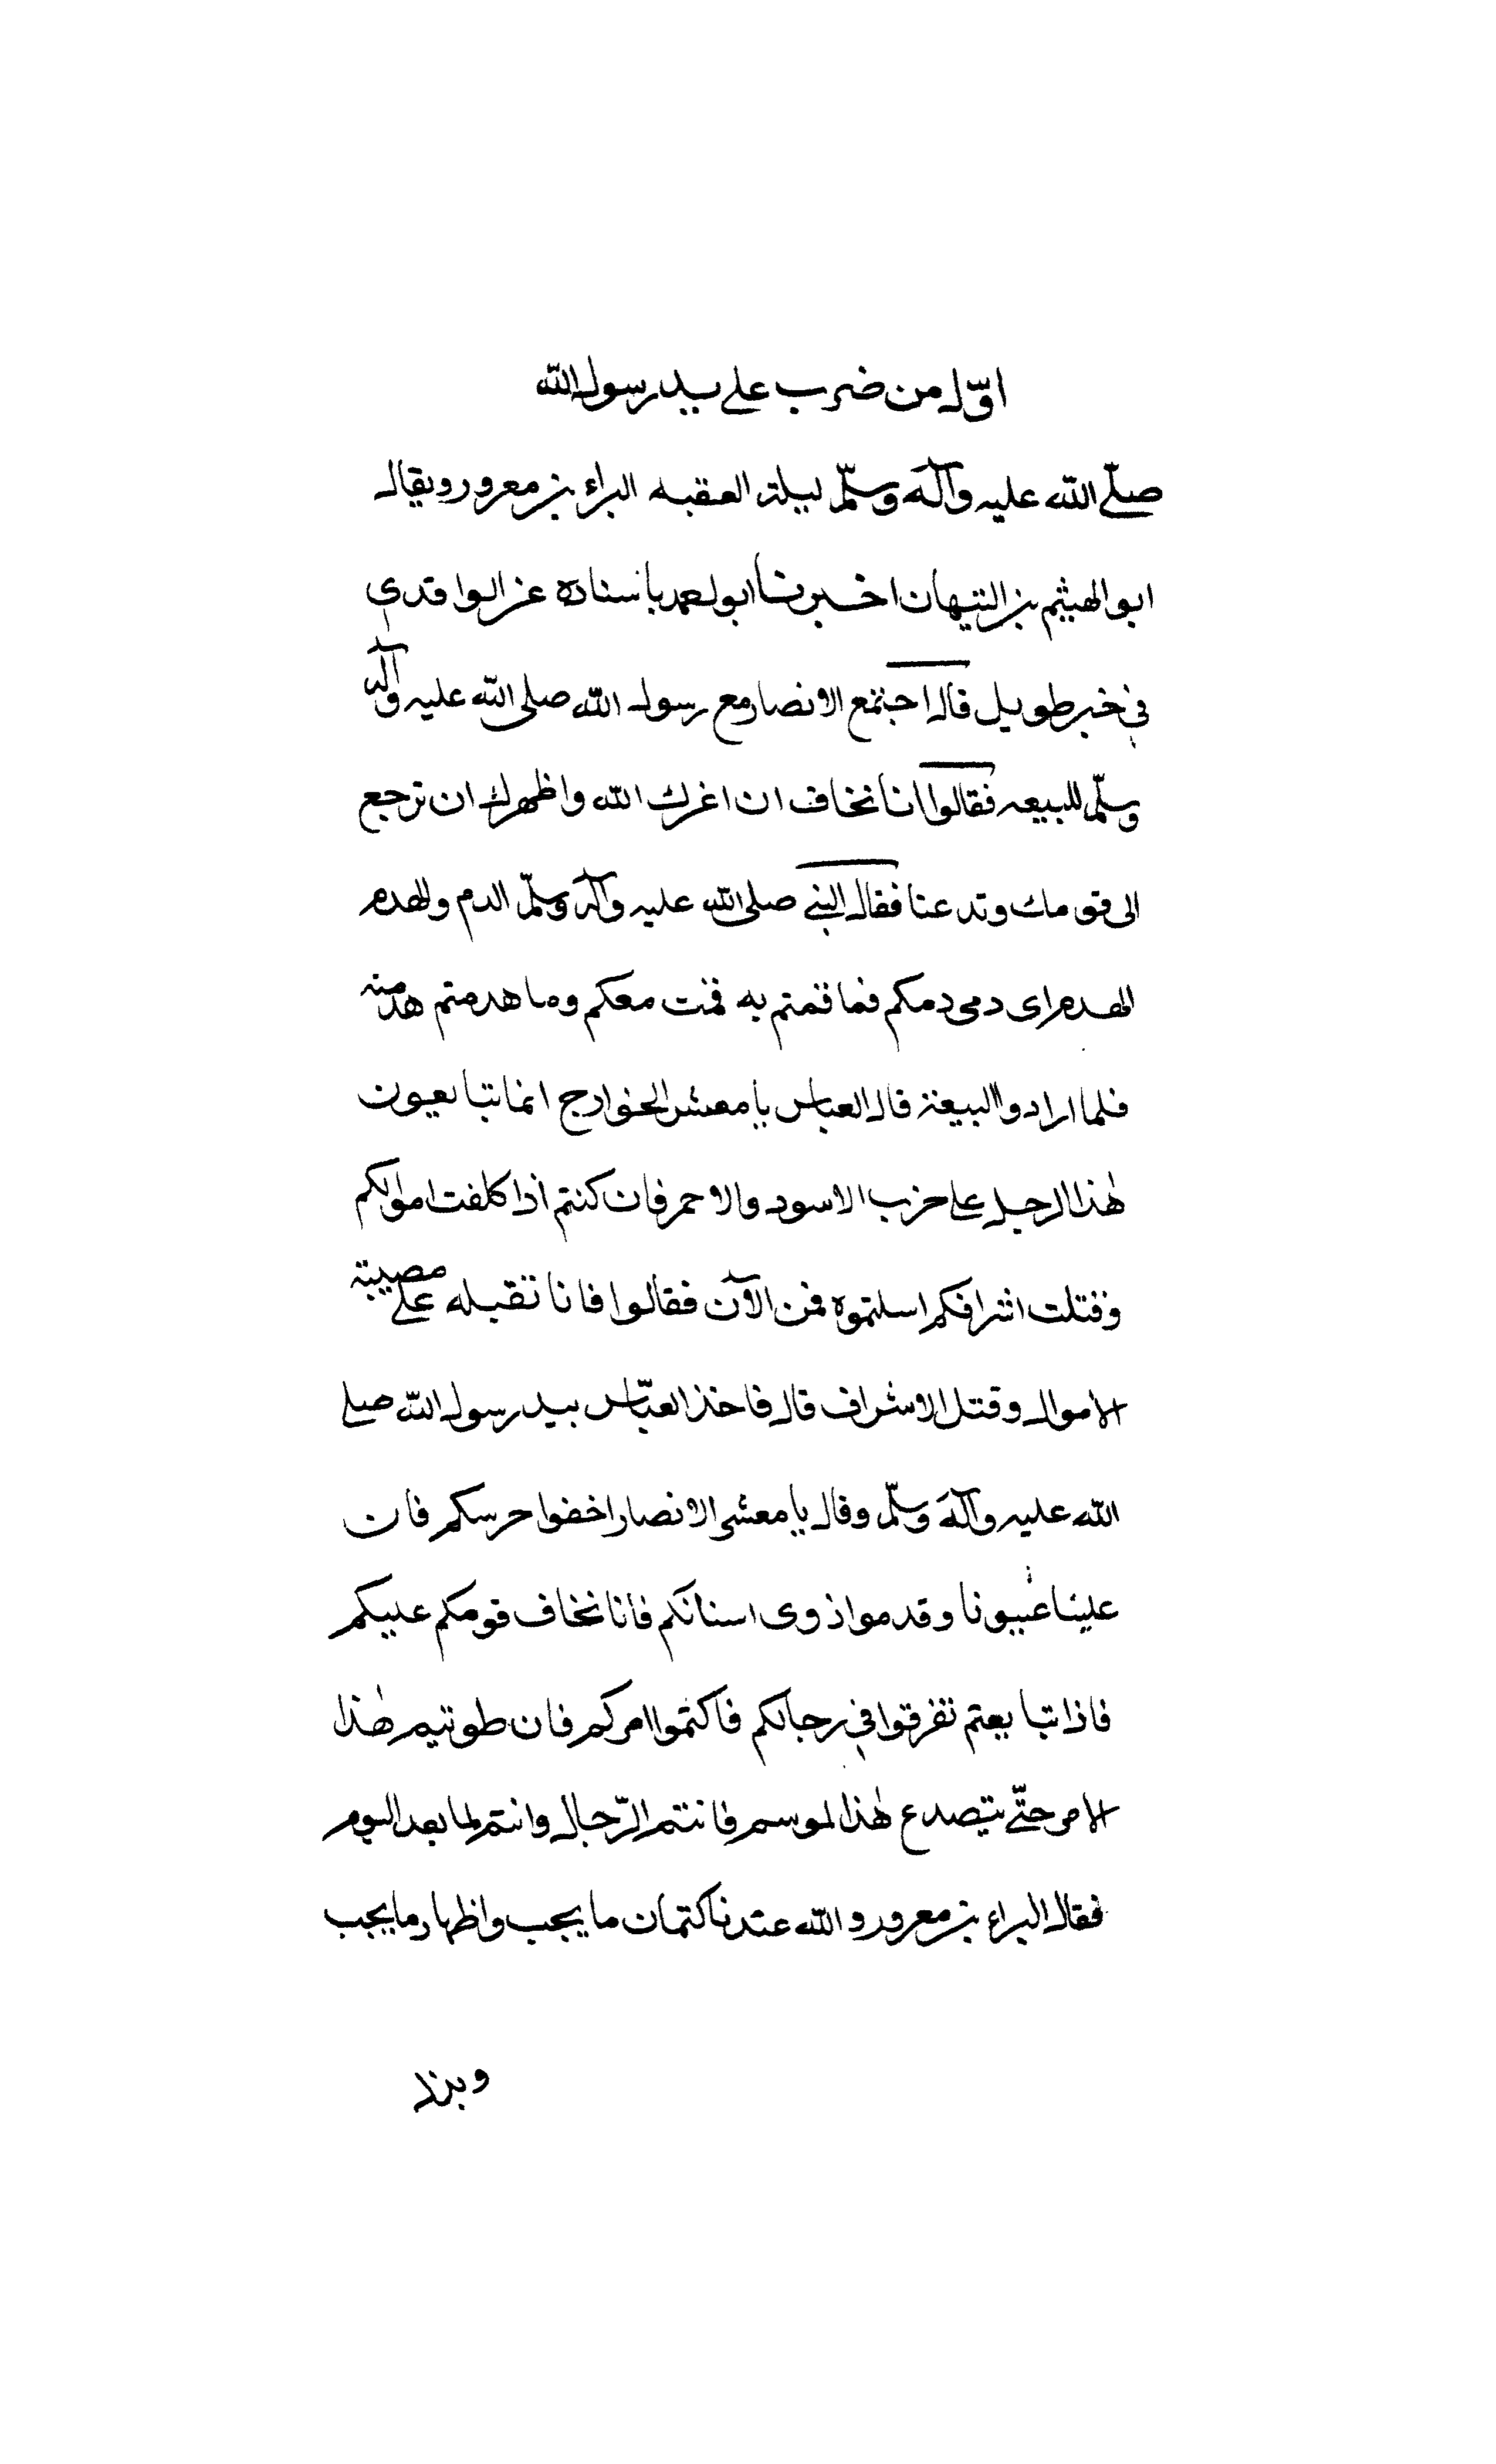 اوّل من ضرب علے يد رسول الله
صلّے الله عليه وآله وسلّم ليلة العقبه البراء بن معرور ويقال
ابو الهيثم بن التيهان اخبرنا ابو احمد باسناده عن الواقدي
في خبر طويل قال اجتمع الانصار مع رسول الله صلى الله عليه وآله
وسلّم للبيعه فقالوا انا نخاف ان اعزك الله واظهرك ان ترجع
الى قومك وتدعنا فقال النبي صلى الله عليه وآله وسلّم الدم والهدم
الهدم اى دمى دمكم فما قمتم به قمت معكم وما هدمتم هدمته
فلما ارادوا البيعة قال العباس يا معشر الخوارج انما تبايعون
هٰذا الرجل على حزب الاسود والاحمر فان كنتم اذا كلفت اموالكم
وقتلت اشرافكم اسلتموه فمن الآن فقالوا فانا نقبله علے مصيبة
الاموال وقتل الاشراف قال فاخذ العبّاس بيد رسول الله صلے
الله عليه وآله وسلّم وقال يا معشر الانصار اخفوا حرسكم فان
علينا عيونا وقدموا ذوى اسنانكم فانا نخاف قومكم عليكم
فاذا تبايعتم تفرقوا في رحالكم فاكتموا امركم فان طويتم هٰذا
الامر حتّے يتصدع هٰذا لموسم فانتم الرّجال وانتم لما بعد اليوم
فقال البراء بن معرور والله عندنا كتمان ما يجب واظهار ما يجب
وبذلا